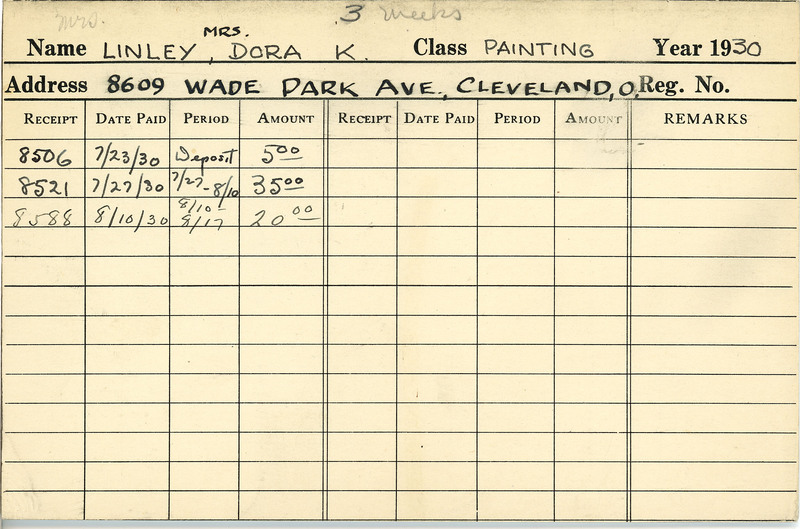 Mrs. 3 weeks
MRS.
Name LINLEY, DORA K. Class PAINTING Year 1930
Address 8609 WADE PARK AVE., CLEVELAND, O. Reg. No.
RECEIPT DATE PAID PERIOD AMOUNT RECEIPT DATE PAID PERIOD AMOUNT REMARKS
8506 7/23/30 Deposit 5 00
8521 7/27/30 7/27-8/10 35 00
8588 8/10/30 8/10- 8/17 20 00